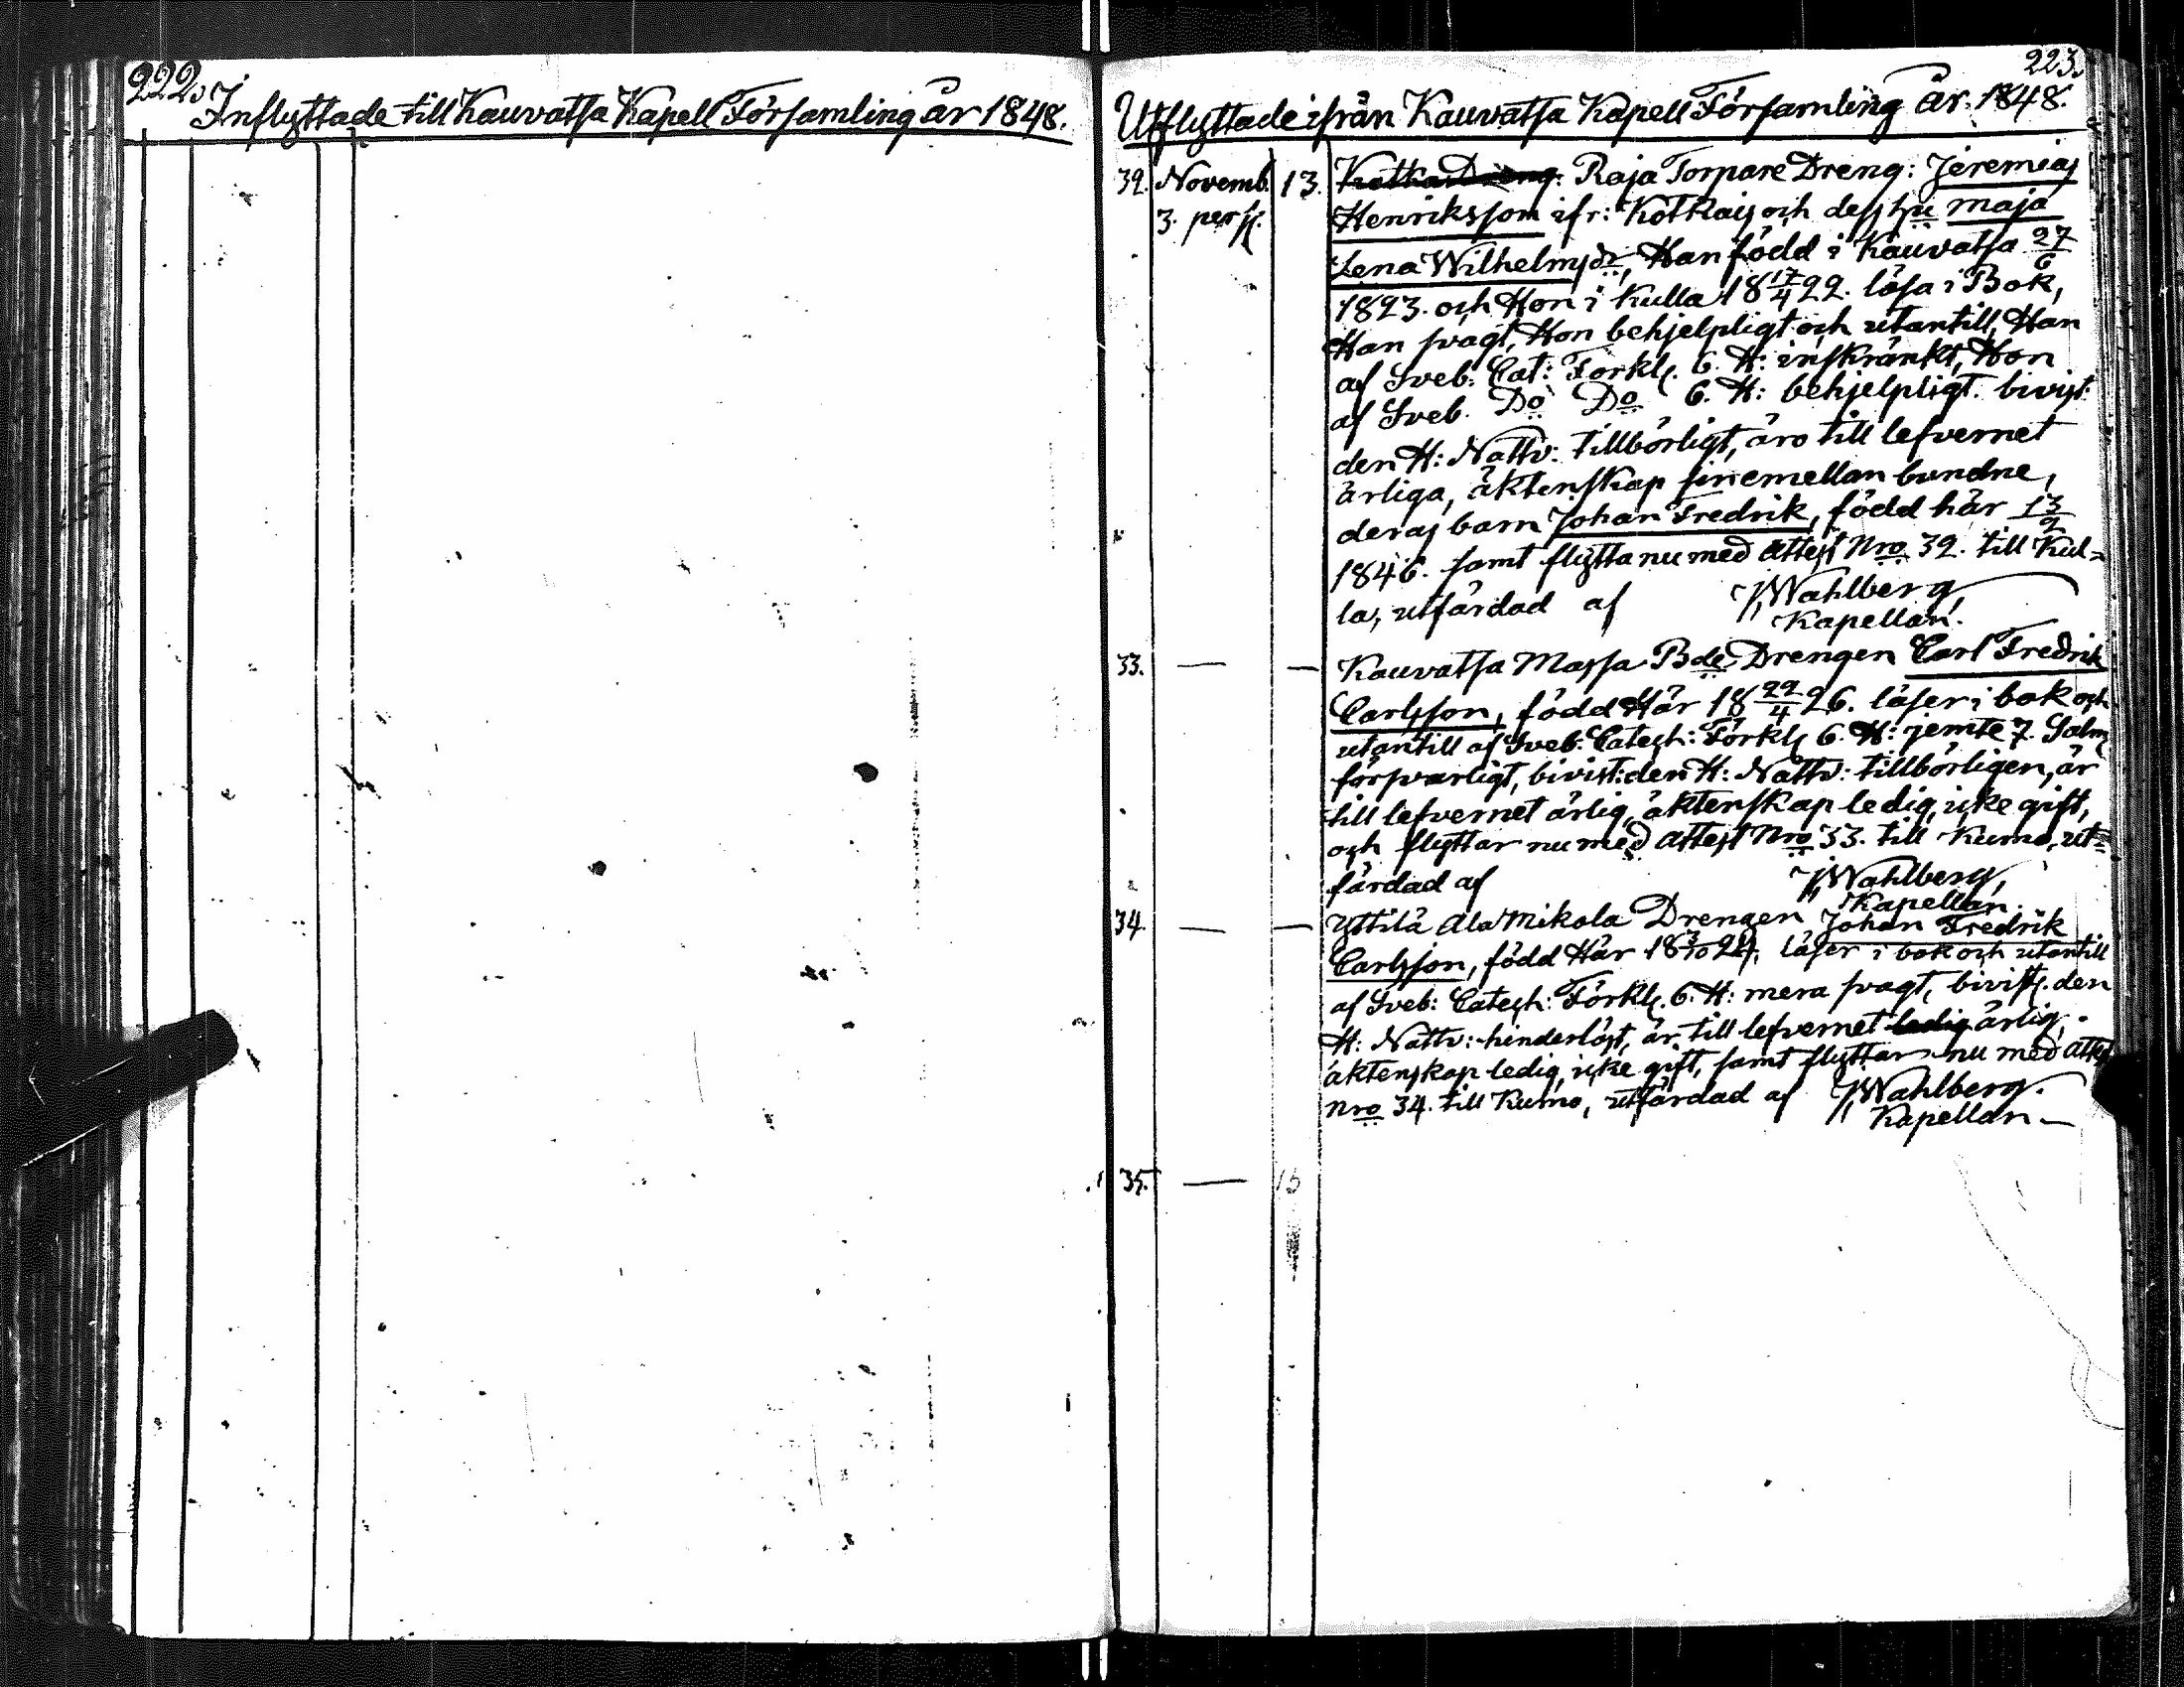 222.
Inflyttade till Kauvatsa Kapell Församling år 1848.
223.
Utflyttade ifrån Kauvatsa Kapell Församling år 1848.
32. Novemb. 13. Kotka Dreng: Raja Torpare Dreng: Jeremias
3. pers. Henriksson ifr: Kotkais och dess hu Maja
Lena Wilhelmsdr, Han född i Kauvatsa 27/6
1823. och Hon i Kulla 18 17/4 22. läsa i Bok,
Han svagt, Hon behjelpligt och utantill, Han
af Sveb: Cat: Förkl. 6. H: inskränkt, Hon
af Sveb. Do Do 6. H: behjelpligt. bivist:
den H: Nattv: tillbörligt, äro till lefvernet
ärliga, äktenskap sinemellan bundne,
deras barn Johan Fredrik, född här 13/2
1846. samt flytta nu med attest Nro 32. till Kul=
la, utfärdad af JWahlberg,
Kapellan.
33. — — Kauvatsa Massa Bde Drengen Carl Fredrik
Carlsson, född Här 18 22/4 26. läser i bok och
utantill af Sveb: Catech: Förkl 6. H: jemte 7. Salm
försvarligt, bivist: den H: Nattv: tillbörligen, är
till lefvernet ärlig, äktenskap ledig, icke gift,
och flyttar nu med attest Nro 33. till Kumo, ut=
färdad af JWahlberg,
Kapellan.
34. — — Yttilä Ala Mikola Drengen Johan Fredrik
Carlsson, född Här 18 3/10 24. läser i bok och utantill
af Sveb: Catech: Förkl. 6. H: mera svagt, bivist. den
H: Nattv: hinderlöst, är till lefvernet ledig ärlig,
äktenskap ledig, icke gift, samt flyttar nu med attest
Nro 34. till Kumo, utfärdad af JWahlberg.
Kapellan —
35. — 15